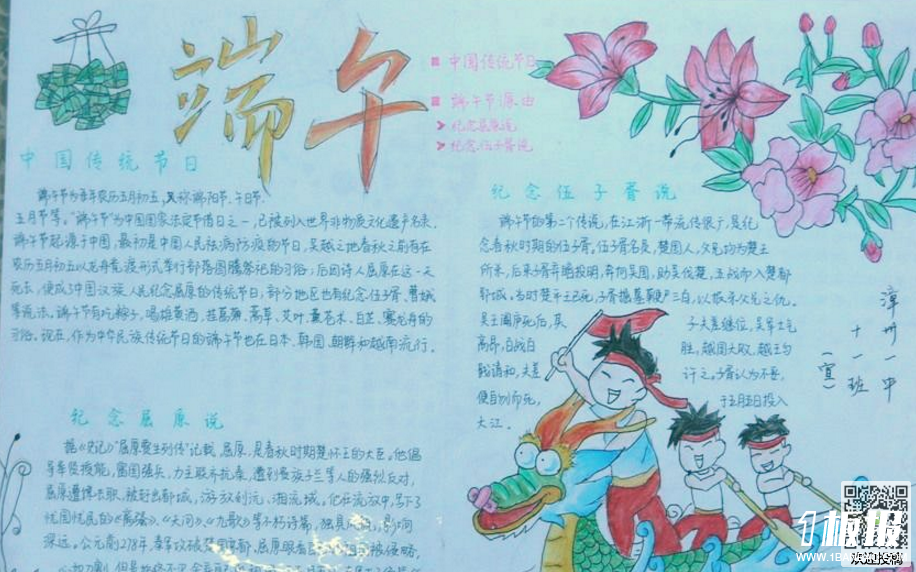 端午
中国传统节日
端午节源由
纪念屈原说
纪念伍子胥说
中国传统节日
端午节为每年农历五月初五,又称端阳节、午日节、
五月节等。"端午节"为中国国家法定节假日之一,已被列入世界非物质文化遗产名录。
端午节起源于中国,最初是中国人民祛病防疫的节日,吴越之地春秋之前有在
农历五月初五以龙舟竞渡形式举行部落图腾祭祀的习俗;后因诗人屈原在这一天
死去,便成了中国汉族人民纪念屈原的传统节日;部分地区也有纪念伍子胥、曹娥
等说法。端午节有吃粽子,喝雄黄酒,挂菖蒲、蒿草、艾叶,薰苍术、白芷,赛龙舟的
习俗。现在,作为中华民族传统节日的端午节也在日本、韩国、朝鲜和越南流行。
纪念屈原说
据《史记》"屈原贾生列传"记载,屈原,是春秋时期楚怀王的大臣。他倡
导举贤授能,富国强兵,力主联齐抗秦,遭到贵族子兰等人的强烈反对,
屈原遭馋去职,被赶出都城,流放到沅、湘流域。他在流放中,写下了
忧国忧民的《离骚》、《天问》、《九歌》等不朽诗篇,独具风
深远。公元前278年,秦军攻破楚国京都。屈原眼看
纪念伍子胥说
端午节的第二个传说,在江浙一带流传很广,是纪
念春秋时期的伍子胥。伍子胥名员,楚国人,父兄均为楚王
所杀,后来子胥弃暗投明,奔向吴国,助吴伐楚,五战而入楚都
郢城。当时楚平王已死,子胥掘墓鞭尸三百,以报杀父兄之仇。
吴王阖庐死后,其子夫差继位,吴军士气
高昂,百战百胜,越国大败,越王勾
践请和,夫差许之。子胥认为不
便自刎而死,于五月五日投入
大江。
漳州一中
十一班
(宣)
板报